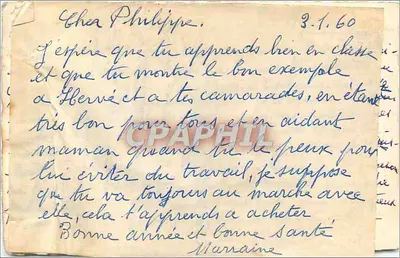 Cher Philippe.
3.1.60
J'espère que tu apprends bien en classe
et que tu montre le bon exemple
a Hervé et a tes camarades, en étant
très bon pour tous et en aidant
maman quand tu le peux pour
lui éviter du travail, je suppose
que tu va toujours au marche avec
elle, cela t'apprends a acheter
Bonne année et bonne santé
Marraine
CPAPHIL